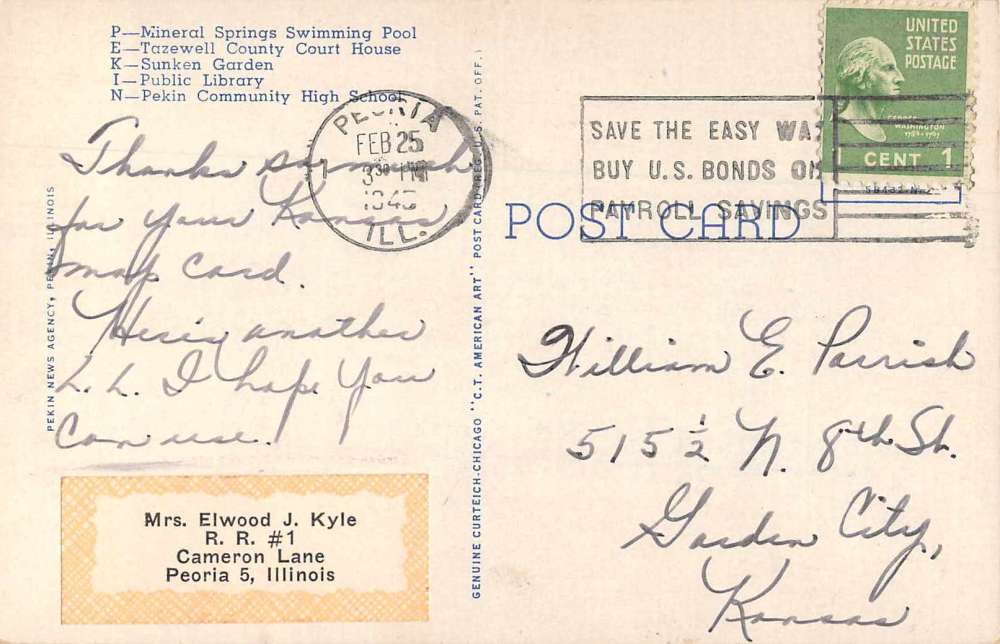 P—Mineral Springs Swimming Pool
E—Tazewell County Court House
K—Sunken Garden
I—Public Library
N—Pekin Community High School
PEORIA
FEB 25
3 30 PM
ILL.
SAVE THE EASY WAY
BUY U.S. BONDS ON
PAYROLL SAVINGS
UNITED
STATES
POSTAGE
GEORGE
WASHINGTON
1789-1797
CENT 1
POST CARD
Thanks so much
for your Kansas
map card.
Here's another
L. L. I hope you
can use.
Mrs. Elwood J. Kyle
R. R. #1
Cameron Lane
Peoria 5, Illinois
PEKIN NEWS AGENCY, PEKIN, ILLINOIS
GENUINE CURTEICH-CHICAGO "C.T. AMERICAN ART" POST CARD (REG. U.S. PAT. OFF.)
William E. Parrish
515½ N. 8th St.
Garden City,
Kansas